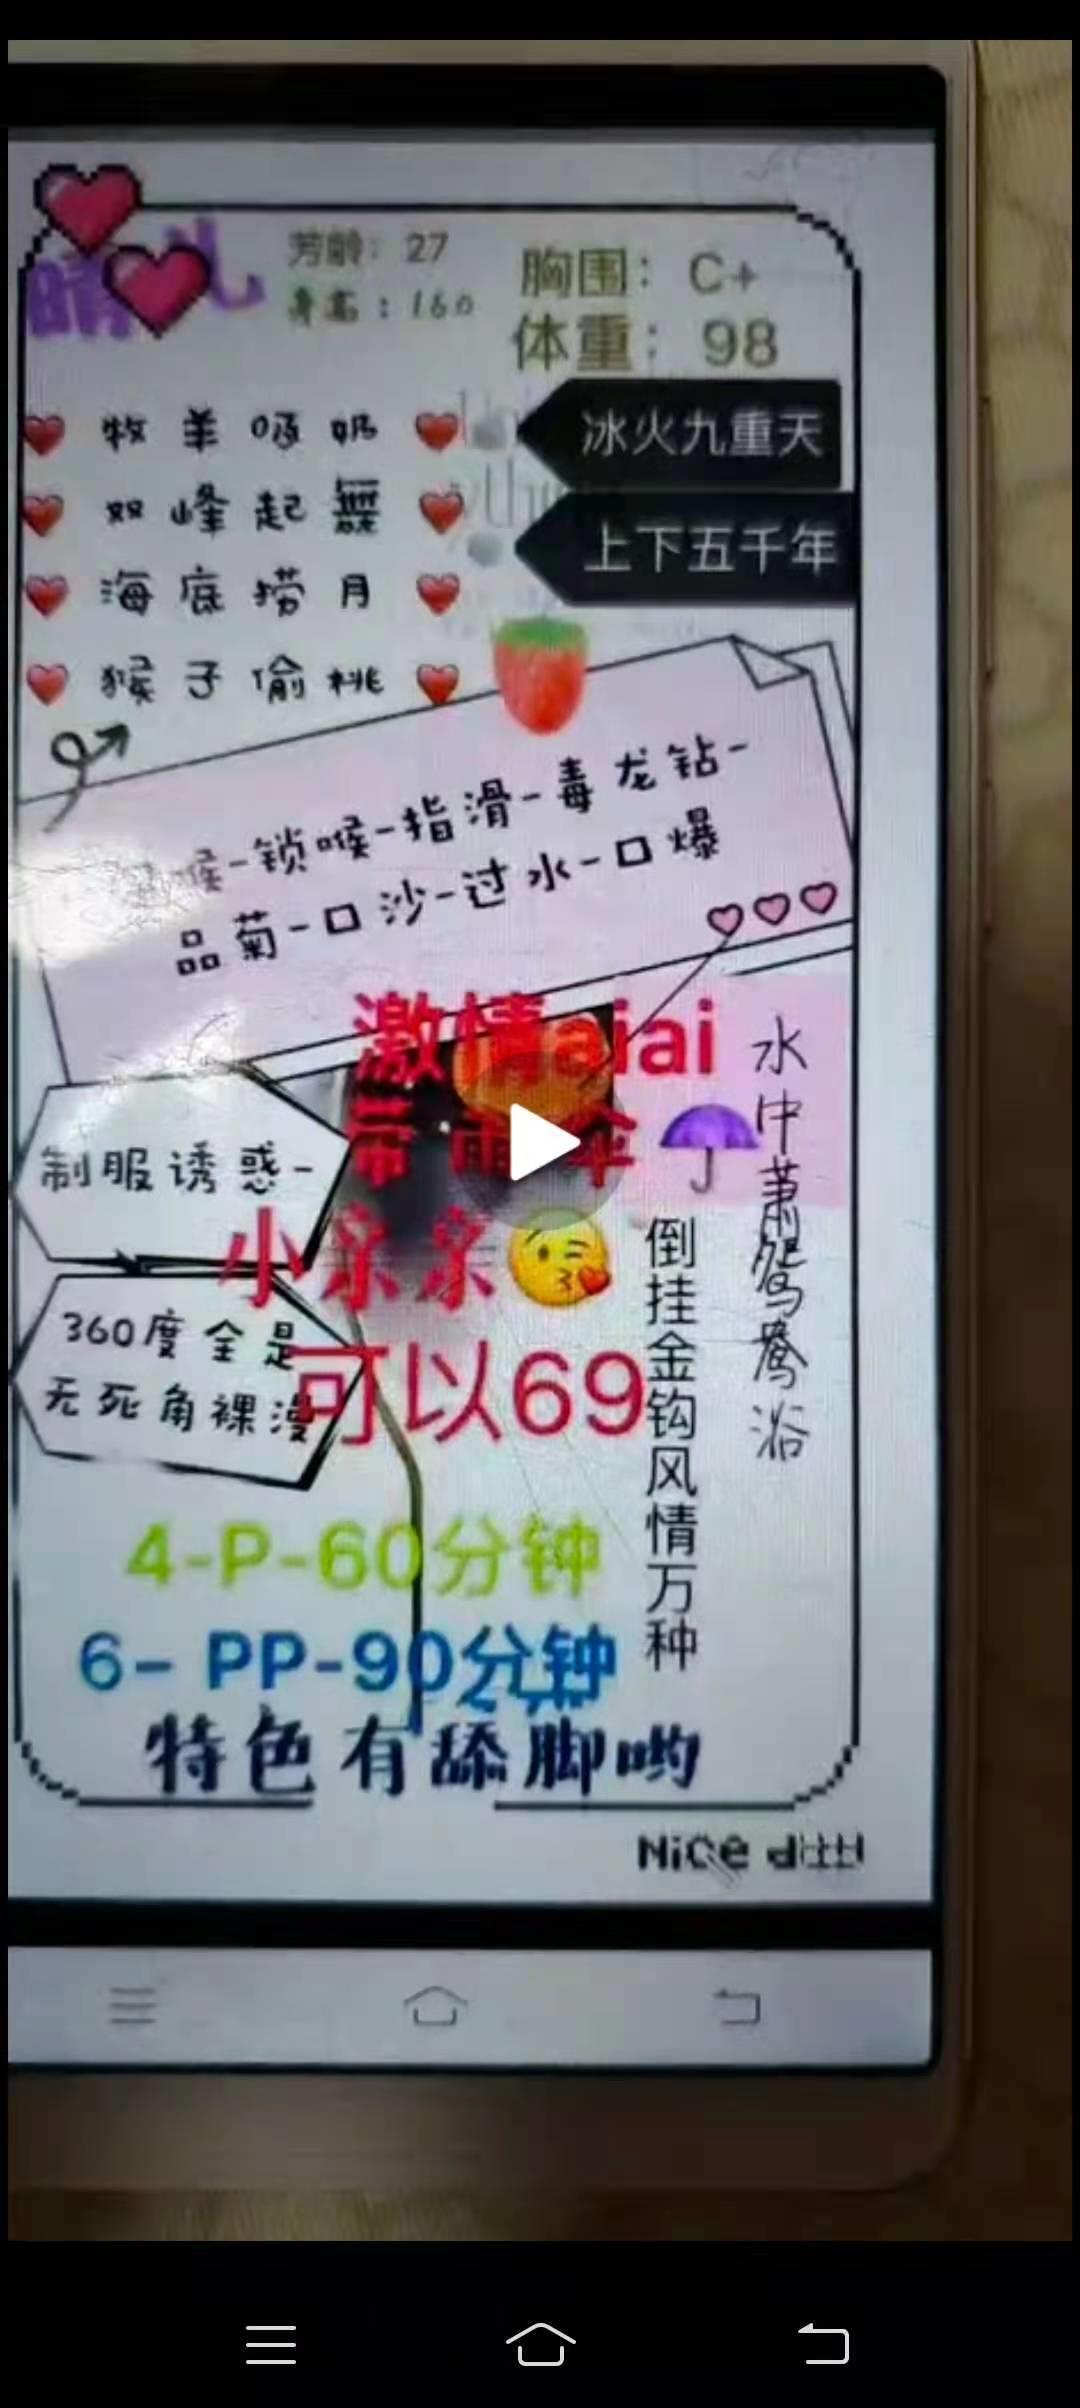 芳龄：27
身高：160
胸围：C+
体重：98
冰火九重天
上下五千年
双峰起舞
海底捞月
猴子偷桃
喉-锁喉-指滑-毒龙钻-
品菊-口沙-过水-口爆
激情aiai
带雨伞
小亲亲
可以69
制服诱惑-
360度全是
无死角裸漫
水中萧鸳鸯浴
倒挂金钩风情万种
4-P-60分钟
6- PP-90分钟
特色有舔脚哟
Nice